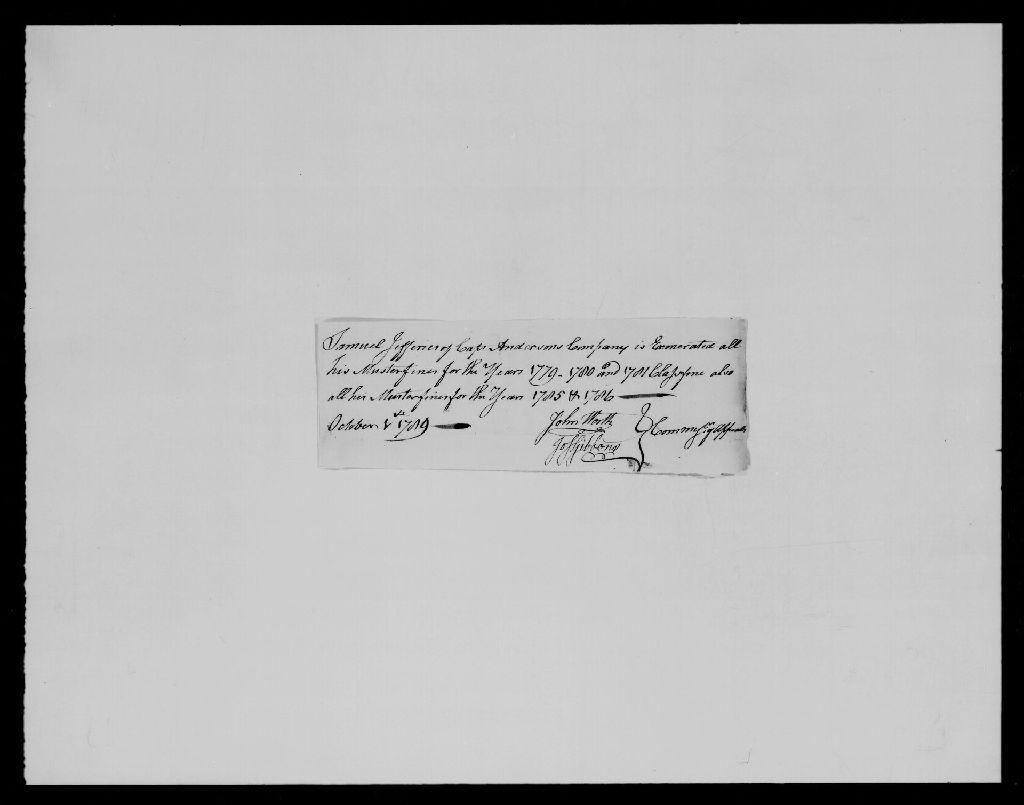 Samuel Jefferies of Capt Andersons Company is Exonerated all
his Musterfines for the Years 1779 - 1780 and 1781 Class fine also
all his Musterfines for the Years 1785 & 1786
October 1789
John Worth
Jos Gibbons
Commys of Appeals